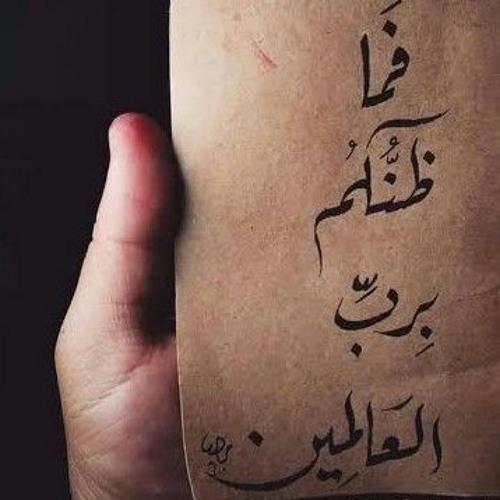 فَمَا
ظَنُّكُم
بِرَبِّ
العَالَمِين